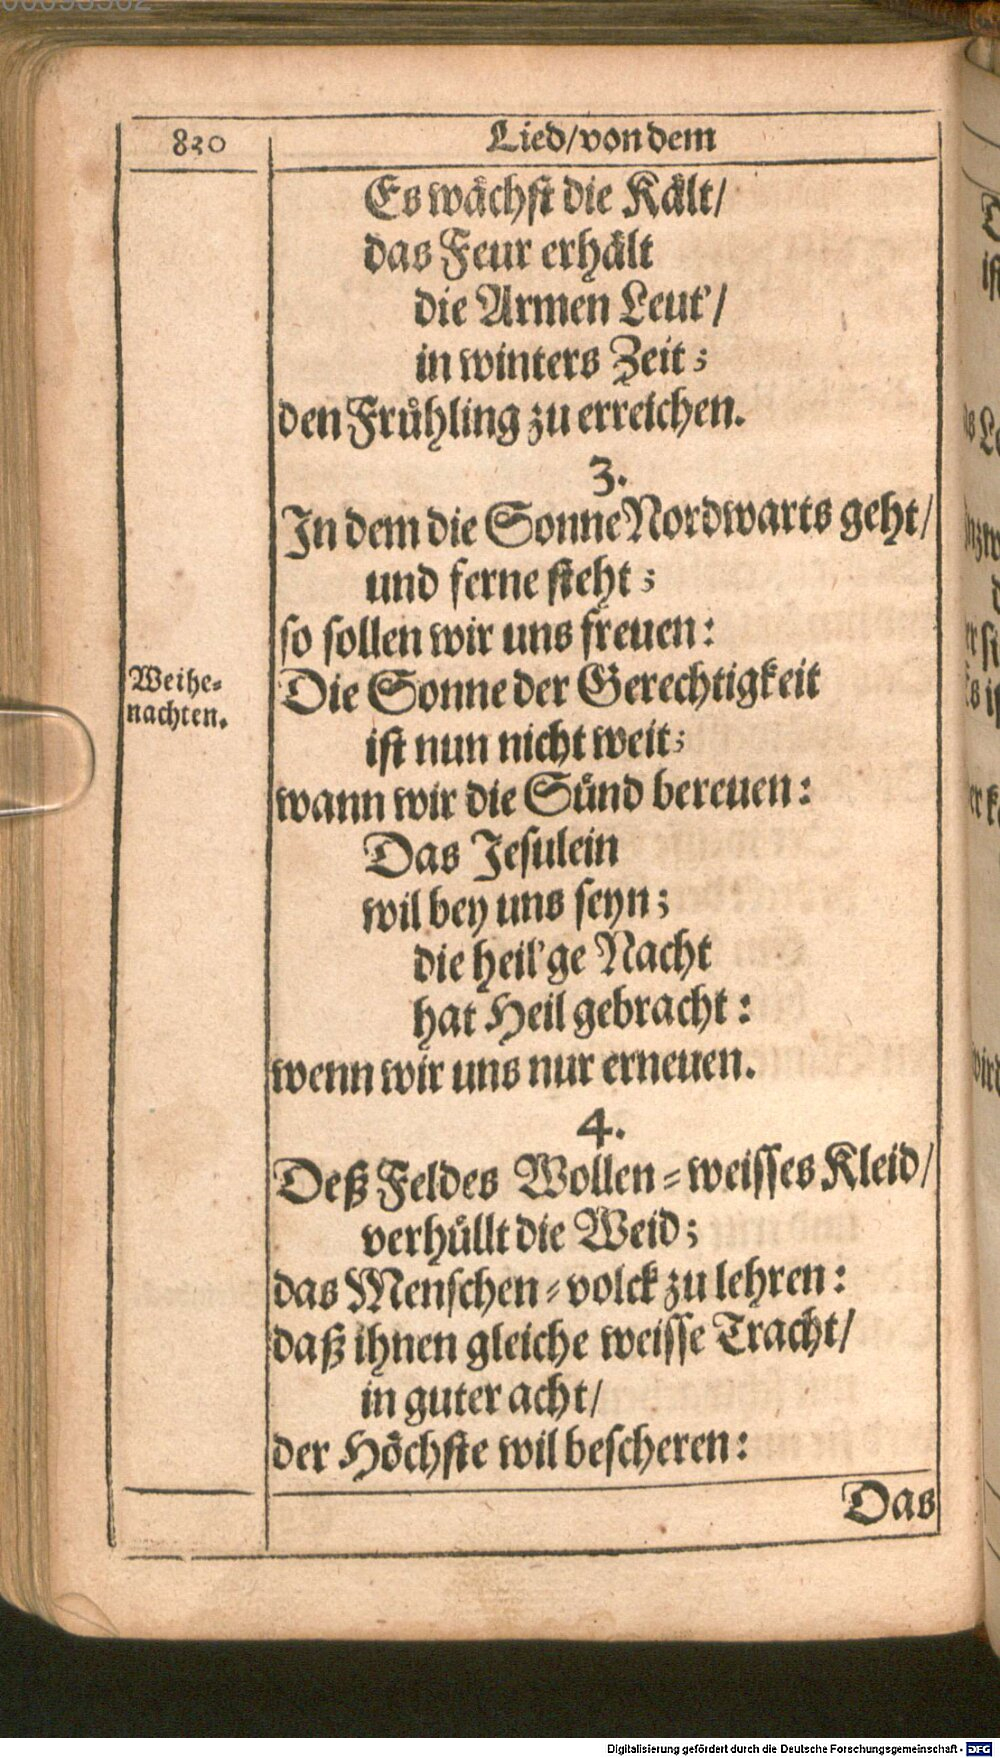 830
Lied/von dem
Es wächst die Kält/
das Feur erhält
die Armen Leut'/
in winters Zeit;
den Frühling zu erreichen.
3.
In dem die Sonne Nordwarts geht/
und ferne steht;
so sollen wir uns freuen:
Weihe-
nachten.
Die Sonne der Gerechtigkeit
ist nun nicht weit;
wann wir die Sünd bereuen:
Das Jesulein
wil bey uns seyn;
die heil'ge Nacht
hat Heil gebracht:
wenn wir uns nur erneuen.
4.
Deß Feldes Wollen-weisses Kleid/
verhüllt die Weid;
das Menschen-volck zu lehren:
daß ihnen gleiche weisse Tracht/
in guter acht/
der Höchste wil bescheren:
Das
Digitalisierung gefördert durch die Deutsche Forschungsgemeinschaft - DFG